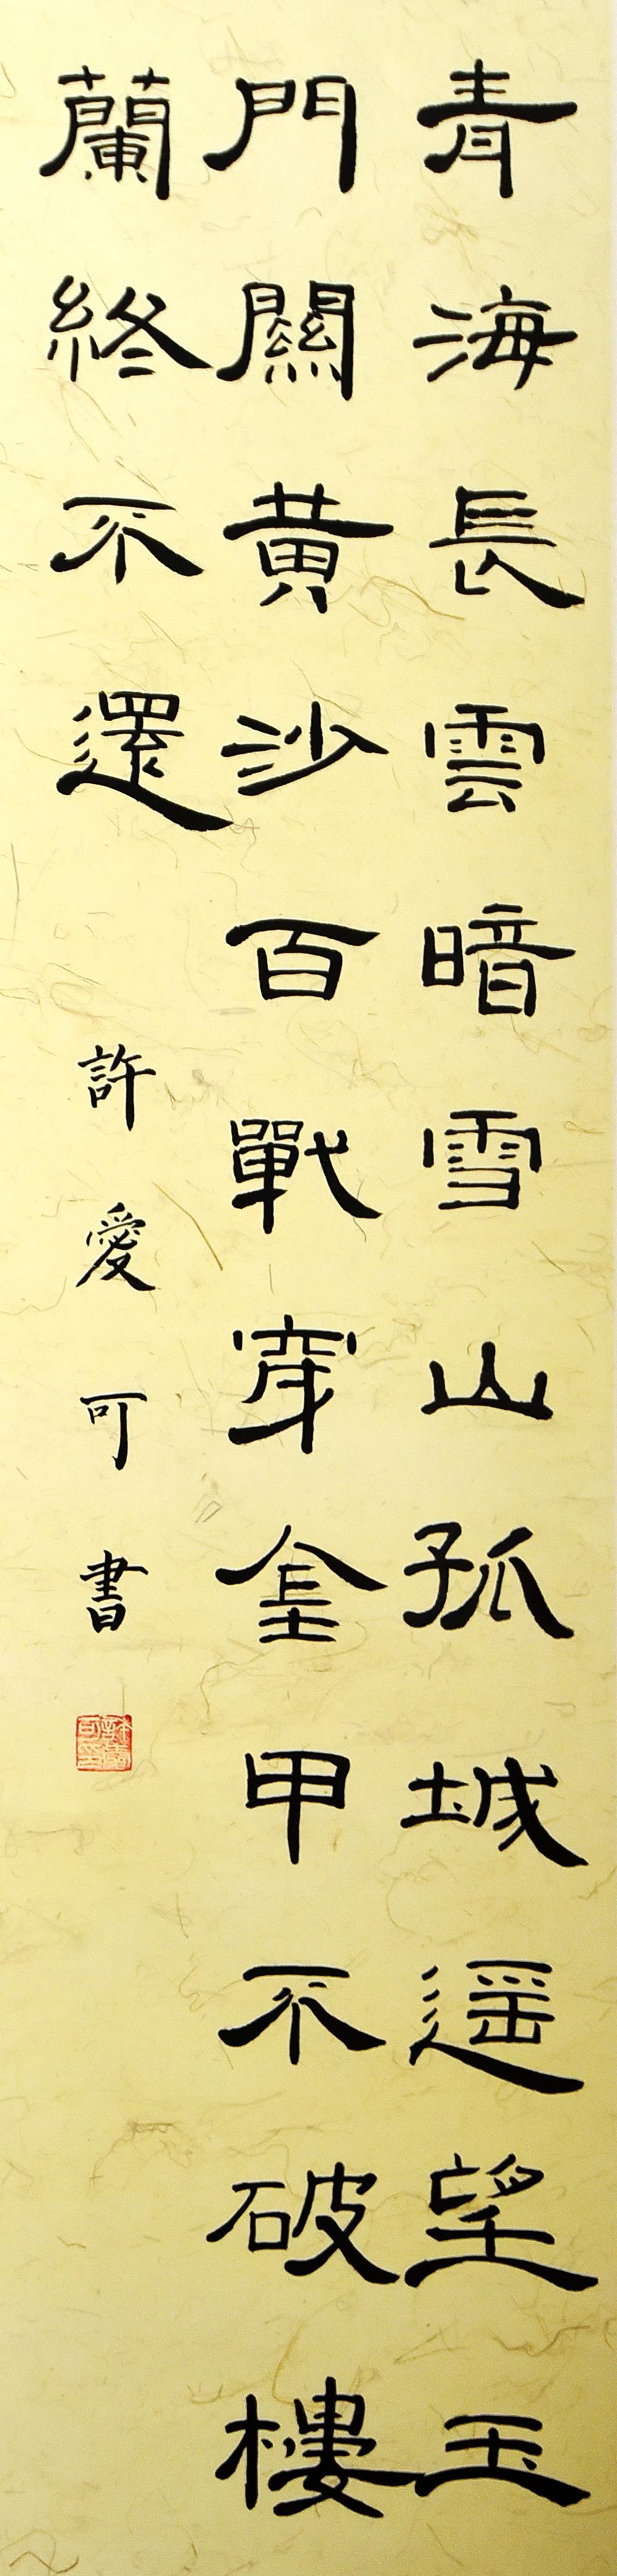 青海長雲暗雪山孤城遥望玉
門關黄沙百戰穿金甲不破樓
蘭終不還
許愛可書